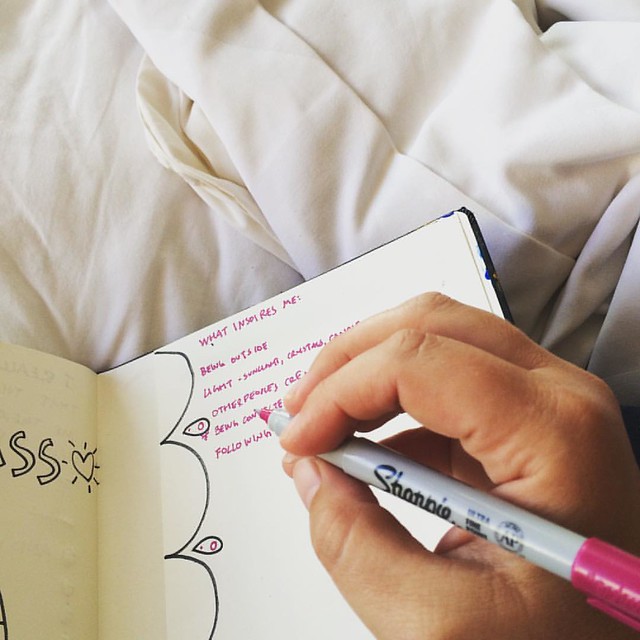 WHAT INSPIRES ME:
BEING OUTSIDE
LIGHT - SUN, LAMPS, CRYSTALS,
OTHER PEOPLES
BEING
FOLLOWING
SS
Sharpie
ULTRA
FINE
AP